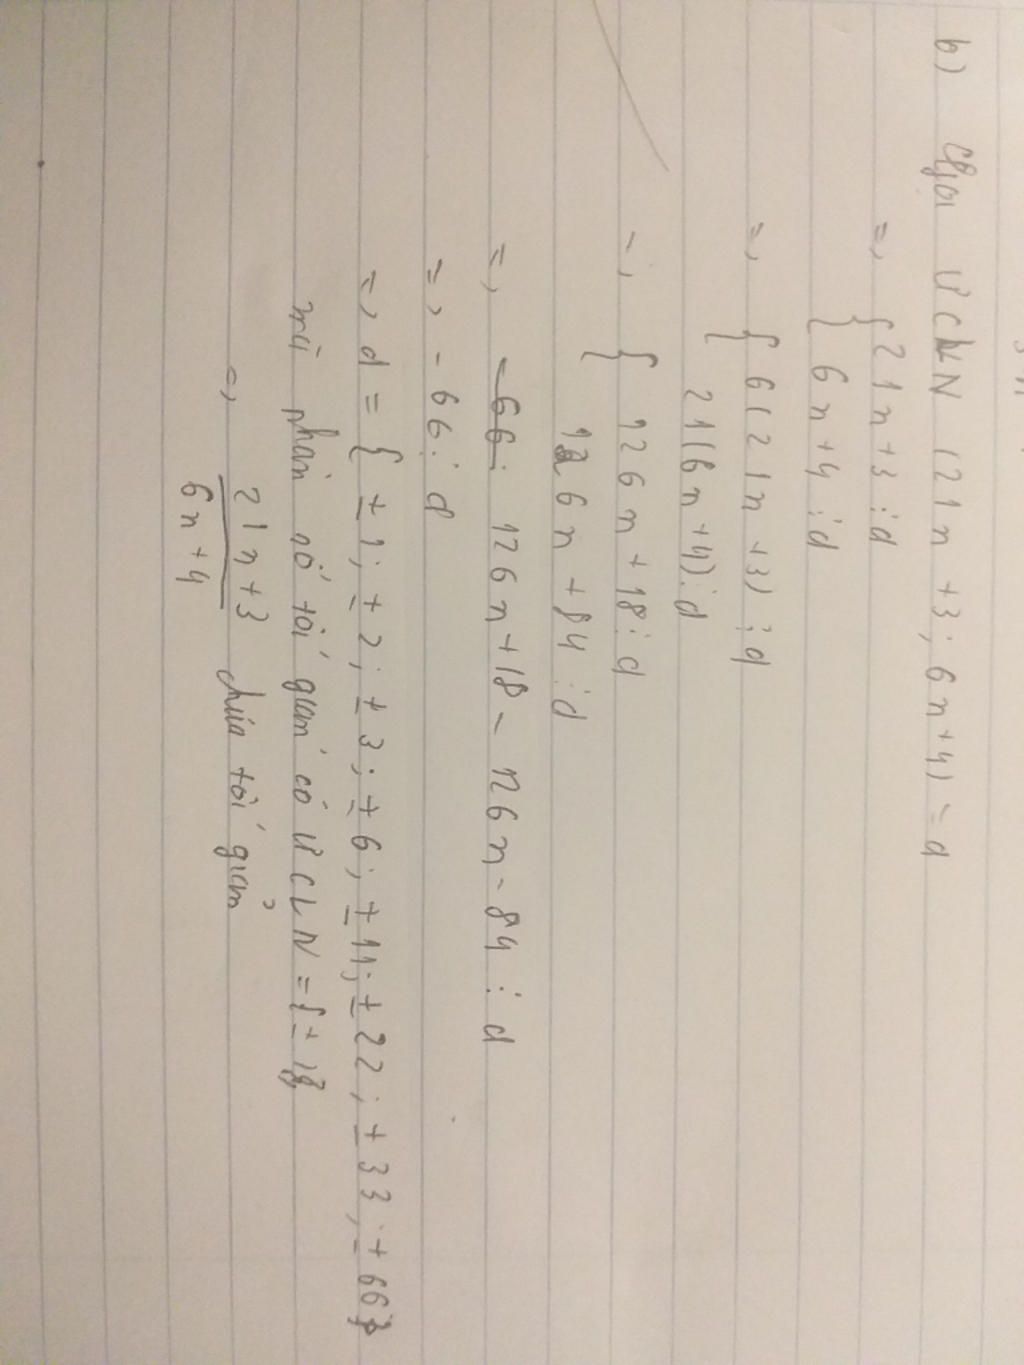 b) Gọi ƯCLN (21n+3; 6n+4) = d
=> { 21n+3 ⋮ d
{ 6n+4 ⋮ d
=> { 6(21n+3) ⋮ d
21(6n+4) ⋮ d
=> { 126n+18 ⋮ d
{ 126n+84 ⋮ d
=> 126n+18 - 126n-84 ⋮ d
=> -66 ⋮ d
=> d = { ±1; ±2; ±3; ±6; ±11; ±22; ±33; ±66}
mà phân số tối giản có ƯCLN = {±1}
=> 21n+3
6n+4 chưa tối giản